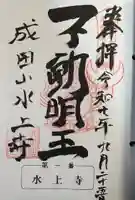 奉拝
令和七年九月二十三日
不動明王
成田山水上寺
第一番
水上寺